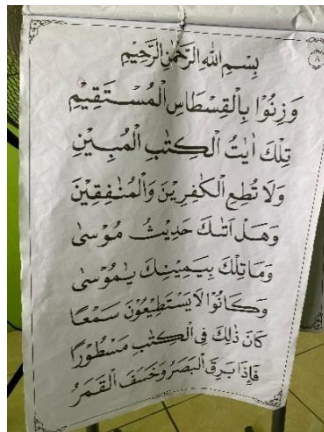 بِسْمِ اللهِ الرَّحْمٰنِ الرَّحِيْمِ
وَزِنُوْا بِالْقِسْطَاسِ الْمُسْتَقِيْمِ
تِلْكَ اٰيٰتُ الْكِتٰبِ الْمُبِيْنِ
وَلَا تُطِعِ الْكٰفِرِيْنَ وَالْمُنٰفِقِيْنَ
وَهَلْ اَتٰىكَ حَدِيْثُ مُوْسٰى
وَمَا تِلْكَ بِيَمِيْنِكَ يٰمُوْسٰى
وَكَانُوْا لَا يَسْتَطِيْعُوْنَ سَمْعًا
كَانَ ذٰلِكَ فِى الْكِتٰبِ مَسْطُوْرًا
فَاِذَا بَرِقَ الْبَصَرُ وَخَسَفَ الْقَمَرُ